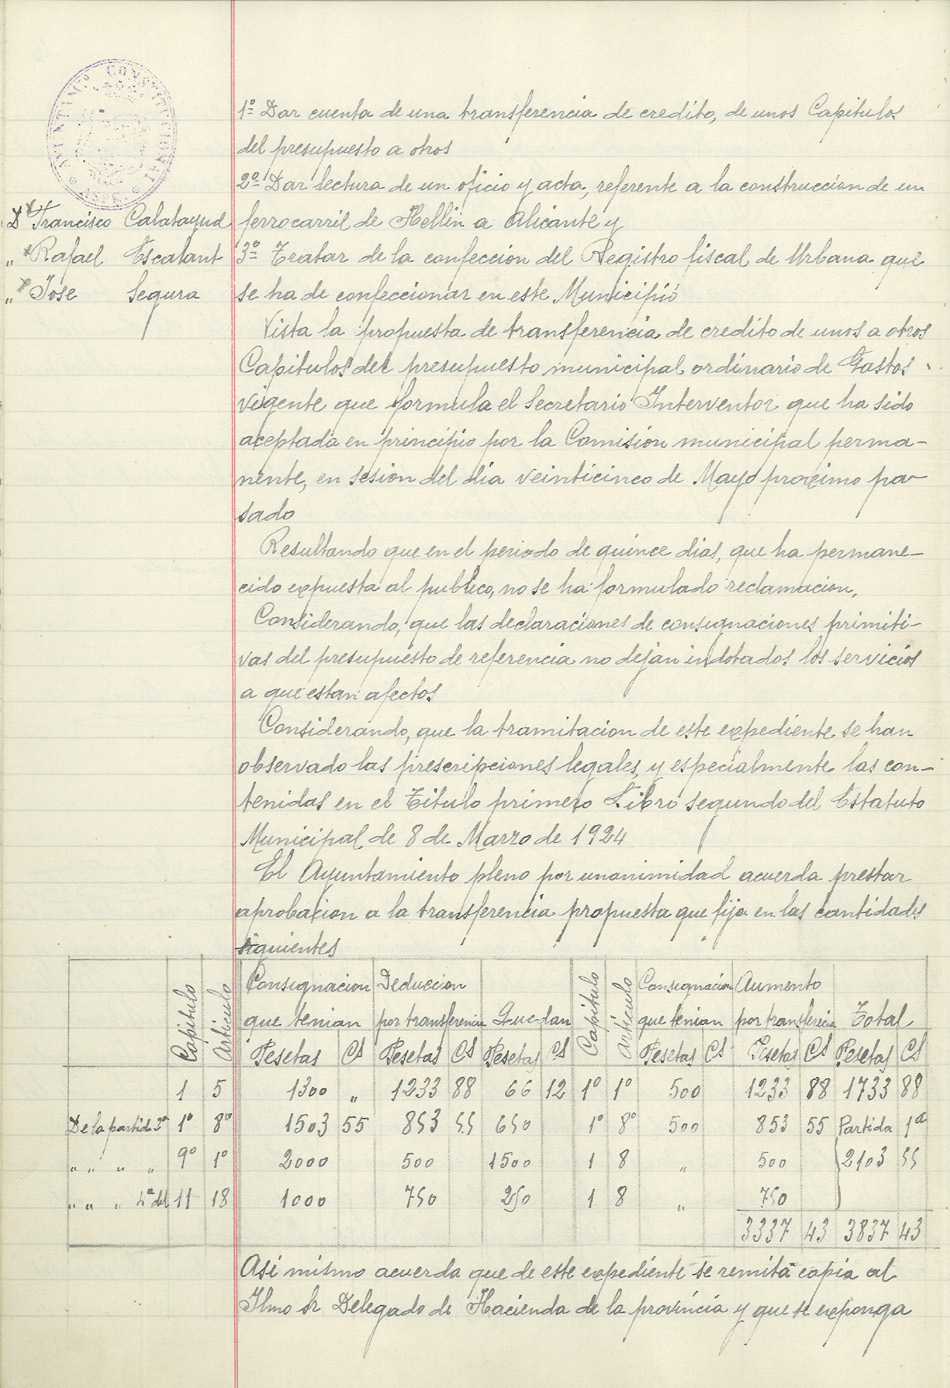 AYUNTAMTO CONSTITUCIONAL
1º Dar cuenta de una transferencia de credito, de unos Capitulos
del presupuesto a otros
2º Dar lectura de un oficio y acta, referente a la construccion de un
Dn Francisco Calatayud
ferrocarril de Hellin a Alicante y
„ Rafael Escalant
3º Tratar de la confección del Registro fiscal de Urbana que
„ Jose Segura
se ha de confeccionar en este Municipio
Vista la propuesta de transferencia de credito de unos a otros
Capitulos del presupuesto municipal ordinario de Gastos
vigente que formula el Secretario Interventor que ha sido
aceptada en principio por la Comisión municipal perma-
nente, en sesion del dia veinticinco de Mayo proximo pa-
sado
Resultando que en el periodo de quince dias, que ha permane-
cido expuesta al publico, no se ha formulado reclamacion,
Considerando, que las declaraciones de consignaciones primiti-
vas del presupuesto de referencia no dejan indotados los servicios
a que estan afectos
Considerando, que la tramitacion de este expediente se han
observado las prescripciones legales, y especialmente las con-
tenidas en el Titulo primero Libro segundo del Estatuto
Municipal de 8 de Marzo de 1924
El Ayuntamiento pleno por unanimidad acuerda prestar
aprobacion a la transferencia propuesta que fija en las cantidades
siguientes
Capitulo Articulo Consignacion Deduccion Capitulo Articulo Consignación Aumento
que tenian por transferencia Quedan que tenian por transferencia Total
Pesetas Cs Pesetas Cs Pesetas Cs Pesetas Cs Pesetas Cs Pesetas Cs
1 5 1300 „ 1233 88 66 12 1º 1º 500 1233 88 1733 88
De la partida 3ª 1º 8º 1503 55 853 55 650 1º 8º 500 853 55 Partida 1ª
„ „ „ „ 9º 1º 2000 500 1500 1 8 „ 500 2103 55
„ „ „ 4ª del 11 18 1000 750 250 1 8 „ 750
3337 43 3837 43
Asi mismo acuerda que de este expediente se remita copia al
Ilmo Sr Delegado de Hacienda de la provincia y que se exponga